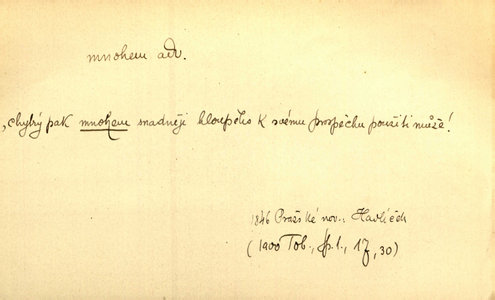 mnohem adv.
„chytrý pak mnohem snadněji hloupého k svému prospěchu použíti může!
1846 Pražské nov., Havlíček
(1900 Tob., sp. 1, 17, 30)